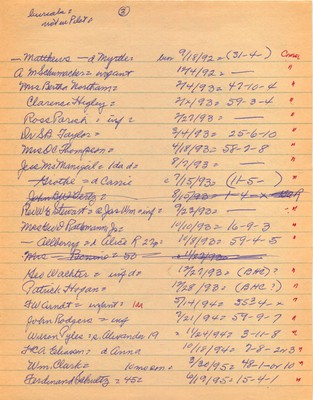 burials =
not in Pilot =
③
— Matthews — d Myrtle = bur 9/18/92 = (31-4-) Conn,
A. M Schumacker = infant 10/4/92 = — "
Mrs Bertha Northam = 2/4/93 = 47-10-4 "
Clarence Higley = 2/2/93 = 59-3-4 "
Ross Parish = inf = 2/27/93 = — "
Dr S.B. Taylor = 3/4/93 = 25-6-10 "
Mrs O.V. Thompson = 4/18/93 = 58-2-8 "
Jess McManigal = 1da d = 8/7/93 = — "
— Grothe = d Carrie = 9/15/93 = (11-5-) "
Geo W E Stewart = s Jas Wm = inf = 9/23/93 = — "
Mrs Geo W Patmann Jr = 10/10/93 = 16-9-3 "
— Allberg = d Alice R 27y = 10/8/93 = 59-4-5 "
Mrs — = 50 = 11/23/93 =
Geo Wachter = inf d = 12/27/93 = (BHC?) "
Patrick Hogan = 12/28/93 = (BHC?) "
F.W. Arndt = infant = 1m 5/14/94 = "
John Rodgers = inf 7/21/94 = 59-9-7 "
Wilson Pyles = s. Alexander 19 = 11/24/94 = 3-11-8 "
F.C.A. Eliason = d Anna 10/18/94 = 7-8-2 or 3 "
Wm. Clark = 10 mo son = 3/30/95 = 48-1-or 10 "
Ferdinand Shultz = 45 = 6/19/95 = 15-4-1 "